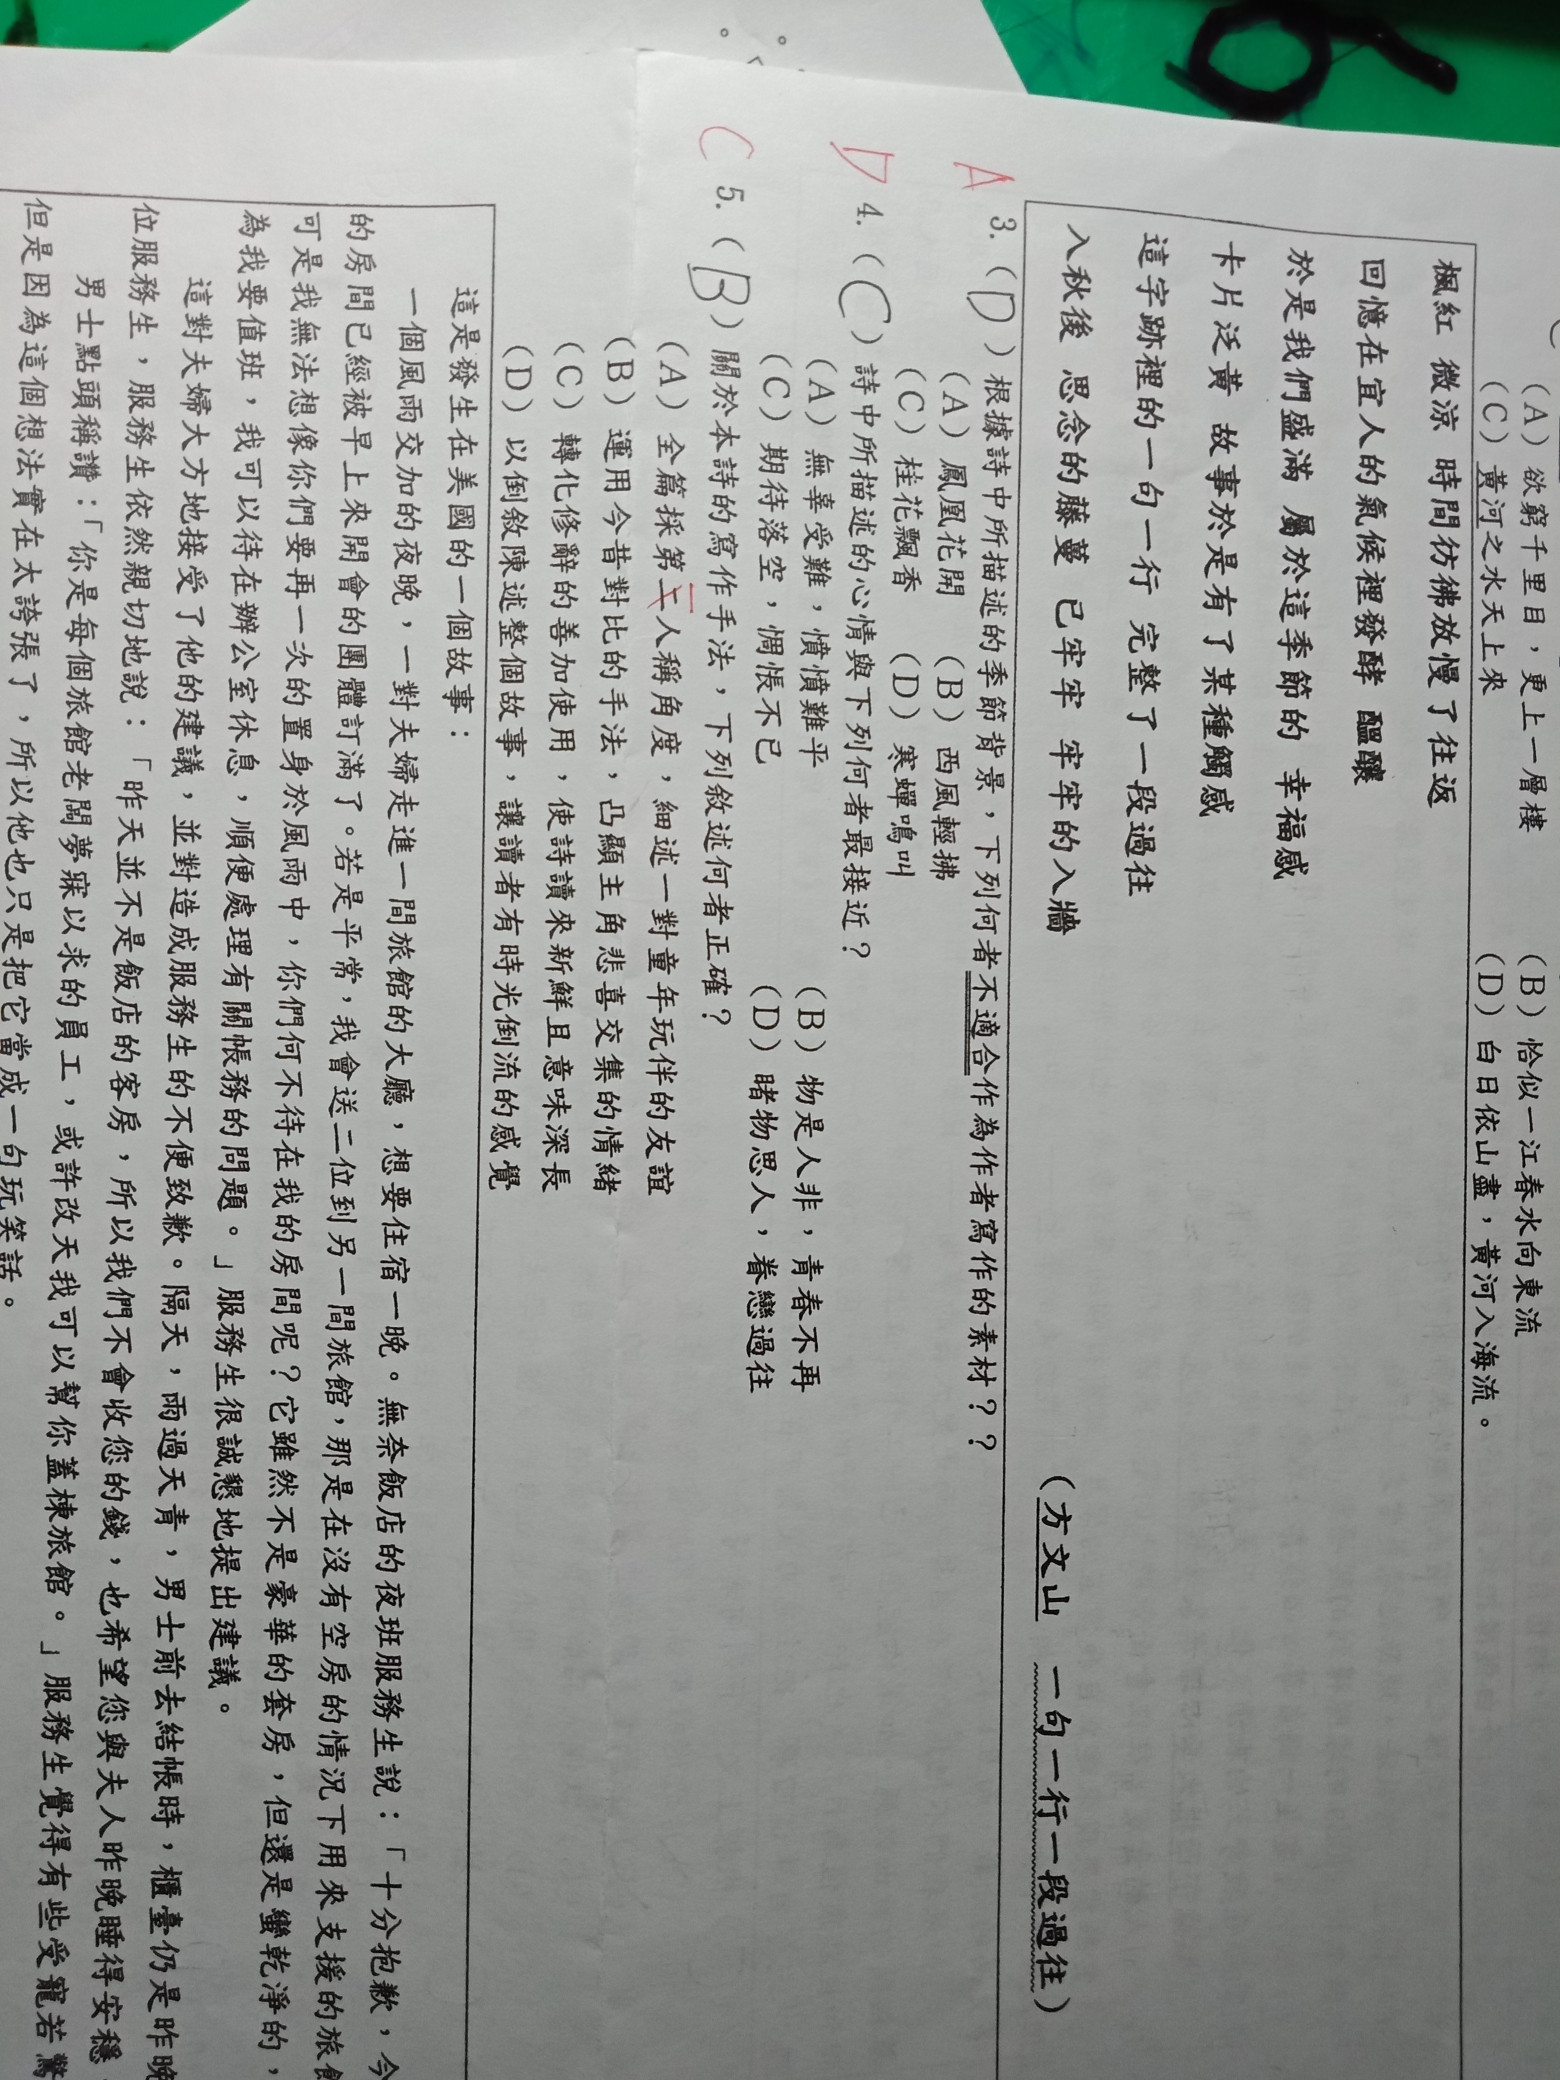 (A)欲窮千里目,更上一層樓 (B)恰似一江春水向東流
(C)黃河之水天上來 (D)白日依山盡,黃河入海流。
楓紅 微涼 時間彷彿放慢了往返
回憶在宜人的氣候裡發酵 醞釀
於是我們盛滿 屬於這季節的 幸福感
卡片泛黃 故事於是有了某種觸感
這字跡裡的一句一行 完整了一段過往
入秋後 思念的藤蔓 已牢牢 牢牢的入牆
(方文山 一句一行一段過往)
A 3.(D)根據詩中所描述的季節背景,下列何者不適合作為作者寫作的素材??
(A)鳳凰花開 (B)西風輕拂
(C)桂花飄香 (D)寒蟬鳴叫
D 4.(C)詩中所描述的心情與下列何者最接近?
(A)無辜受難,憤憤難平 (B)物是人非,青春不再
(C)期待落空,惆悵不已 (D)睹物思人,眷戀過往
C 5.(B)關於本詩的寫作手法,下列敘述何者正確?
(A)全篇採第二一人稱角度,細述一對童年玩伴的友誼
(B)運用今昔對比的手法,凸顯主角悲喜交集的情緒
(C)轉化修辭的善加使用,使詩讀來新鮮且意味深長
(D)以倒敘陳述整個故事,讓讀者有時光倒流的感覺
這是發生在美國的一個故事:
一個風雨交加的夜晚,一對夫婦走進一間旅館的大廳,想要住宿一晚。無奈飯店的夜班服務生說:「十分抱歉,今
的房間已經被早上來開會的團體訂滿了。若是平常,我會送二位到另一間旅館,那是在沒有空房的情況下用來支援的旅館
可是我無法想像你們要再一次的置身於風雨中,你們何不待在我的房間呢?它雖然不是豪華的套房,但還是蠻乾淨的,
為我要值班,我可以待在辦公室休息,順便處理有關帳務的問題。」服務生很誠懇地提出建議。
這對夫婦大方地接受了他的建議,並對造成服務生的不便致歉。隔天,雨過天青,男士前去結帳時,櫃臺仍是昨晚
位服務生,服務生依然親切地說:「昨天並不是飯店的客房,所以我們不會收您的錢,也希望您與夫人昨晚睡得安穩
男士點頭稱讚:「你是每個旅館老闆夢寐以求的員工,或許改天我可以幫你蓋棟旅館。」服務生覺得有些受寵若驚
但是因為這個想法實在太誇張了,所以他也只是把它當成一句玩笑話。